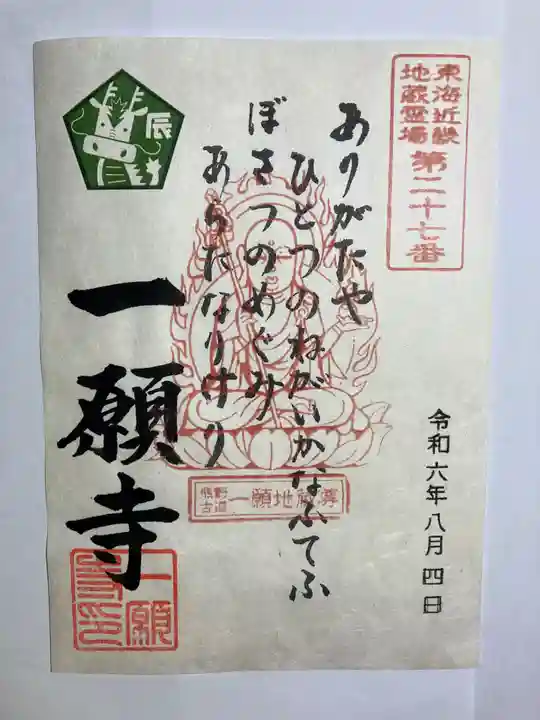 東海近畿
地蔵霊場
第二十七番
令和六年八月四日
ありがたや
ひとつのねがいかなふてふ
ぼさつのめぐみ
あらたなりけり
辰
一願寺
熊野
古道
一願地蔵尊
一願
寺印